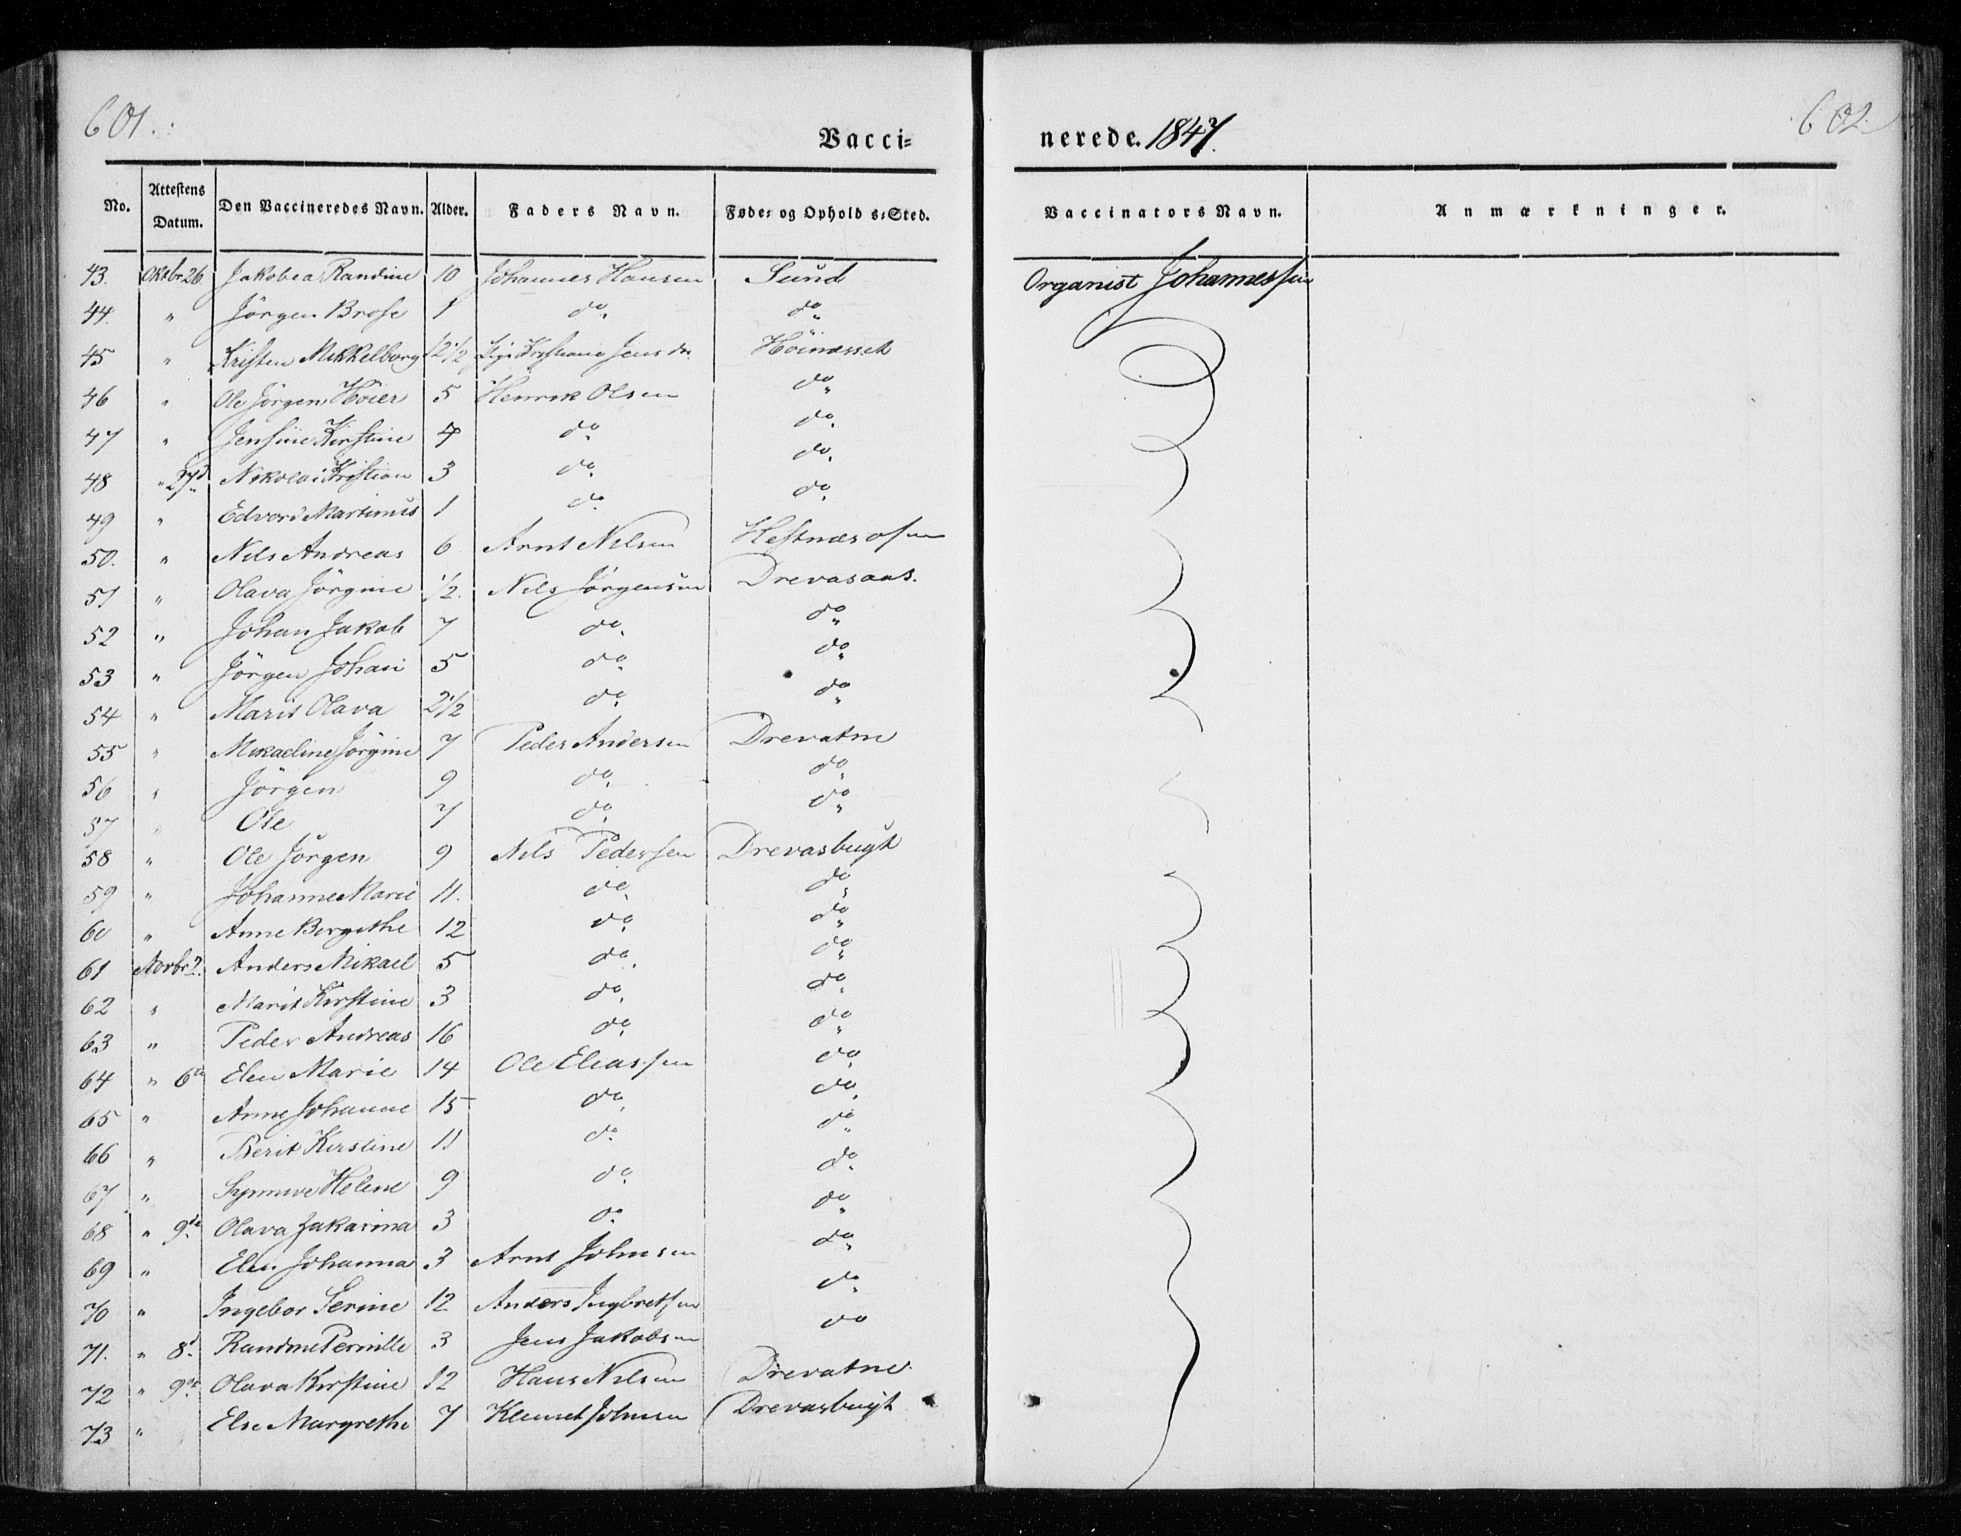 601. 602.
Vacci= nerede. 1847.
No. Attestens Datum. Den Vaccineredes Navn. Alder. Faders Navn. Føde= og Opholds=Sted. Vaccinators Navn. Anmærkninger.
43. Oktbr 26 Jakobea Randine 10 Johannes Hansen Sund Organist Johannessen
44. " Jörgen Brose 1 do. do.
45 " Kristen Mikkelborg 12½ Kristiana Jensdr Höinæsset
46 " Ole Jörgen Höier 5 Henrik Olsen do.
47 " Jensine Kirstine 4 do. do.
48 " 27d Nikolai Kristian 3 do. do.
49 " Edvard Martinus 1 do. do.
50. " Nils Andreas 6 Arnt Nilsen Hestnæsosen
51 " Olava Jörgine ½. Nils Jörgensen Drevasaas.
52 " Johan Jakob 7 do. do.
53 " Jörgen Johan 5 do. do.
54 " Marit Olava 2½ do. do.
55 " Mikaeline Jörgine 7 Peder Andersen Drevatne
56 " Jörgen 9 do. do.
57 " Ole 7 do. do.
58 " Ole Jörgen 9 Nils Pedersen Drevasbugt
59 " Johanne Marie 11. do. do.
60 " Anne Birgithe 12 do. do.
61 Novbr 2. Anders Mikael 5 do. do.
62 " Marit Kirstine 3 do. do.
63 " Peder Andreas 16 do. do.
64 " 6te Elen Marie 14 Ole Eliassen do.
65 " Anne Johanne 15 do. do.
66 " Berit Kirstine 11 do. do.
67 " Synnive Helene 9 do. do.
68 " 9de Olava Jakarina 3 do. do.
69 " Elen Johanna 3 Arnt Johnsen do.
70 " Ingebor Serine 12 Anders Ingbretsen do.
71. " 8d. Randine Pernille 3 Jens Jakobsen do
72 " 9de Olava Kirstine 12 Hans Nilsen Drevatne
73 " Else Margrethe 7 Klemet Johnsen Drevasbugt